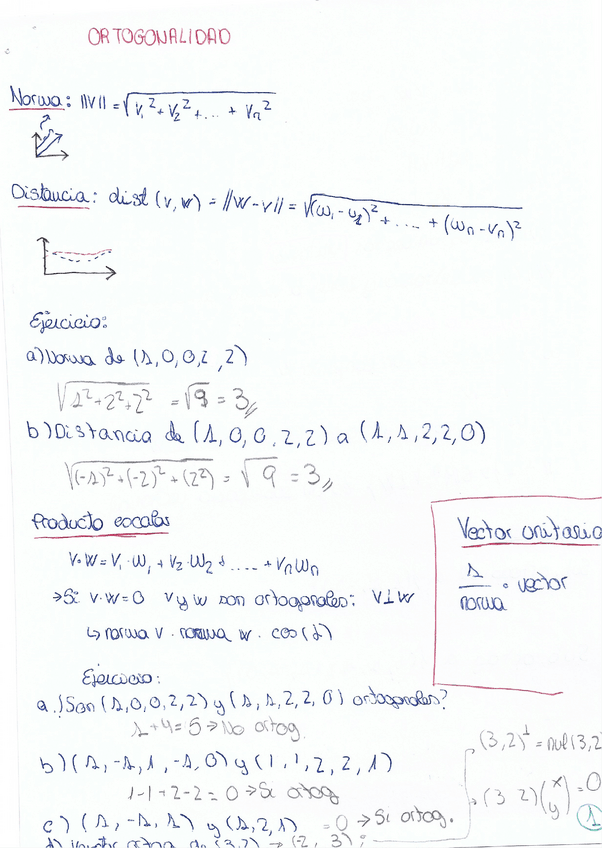 ORTOGONALIDAD
Norma: ||v|| = √(v₁² + v₂² + ... + vₙ²)
Distancia: dist (v, w) = ||w - v|| = √((w₁ - v₁)² + .... + (wₙ - vₙ)²)
Ejercicio:
a) Norma de (1, 0, 0, 2, 2)
√(1² + 2² + 2²) = √9 = 3
b) Distancia de (1, 0, 0, 2, 2) a (1, 1, 2, 2, 0)
√((-1)² + (-2)² + (2²)) = √9 = 3
Producto escalar
v·w = v₁·w₁ + v₂·w₂ + .... + vₙwₙ
→ Si v·w = 0 v y w son ortogonales: v⊥w
↳ norma v · norma w · cos(α)
Vector unitario
1/norma · vector
Ejercicio:
a.) Son (1, 0, 0, 2, 2) y (1, 1, 2, 2, 0) ortogonales?
1 + 4 = 5 → No ortog.
b) (1, -1, 1, -1, 0) y (1, 1, 2, 2, 1)
1 - 1 + 2 - 2 = 0 → Si ortog
c) (1, -1, 1) y (1, 2, 1) = 0 → Si ortog.
(3, 2)⊥ = nul (3, 2
(3 2) (x y) = 0
1
de (3, 2) → (-2, 3);